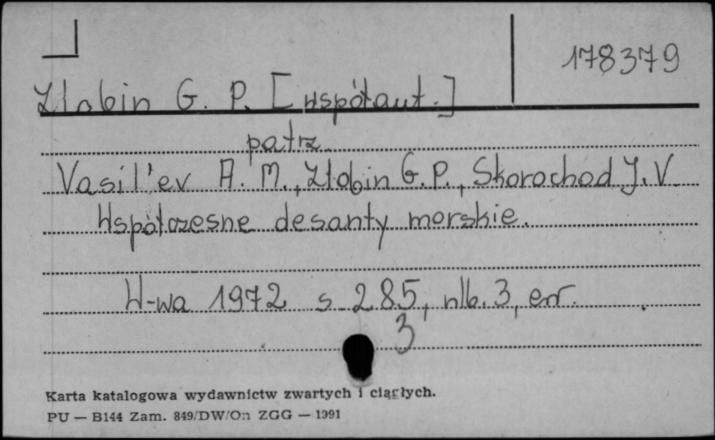 178379
Zlobin G. P. [współaut.]
patrz
Vasil'ev A. M., Zlobin G. P., Skorochod J. V.
Współczesne desanty morskie.
W-wa 1972 s. 285, nlb. 3, err.
3
Karta katalogowa wydawnictw zwartych i ciągłych.
PU — B144 Zam. 849/DW/On ZGG — 1991